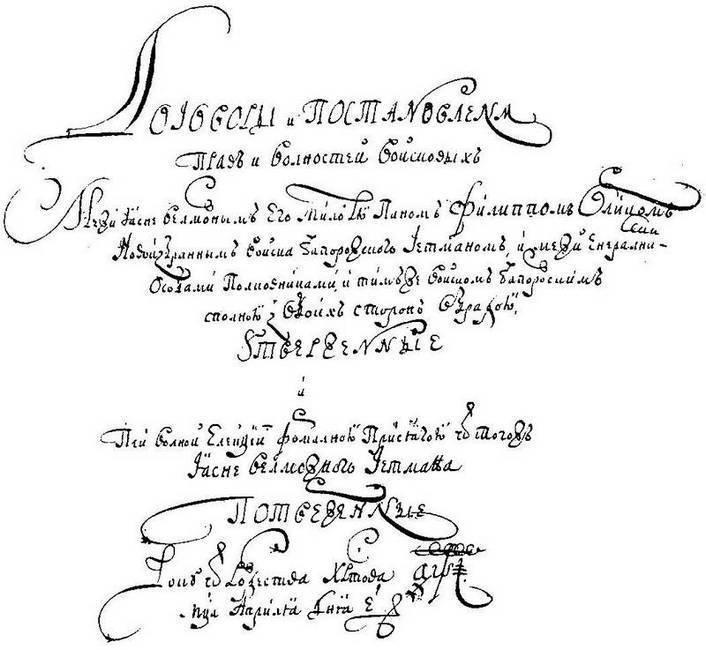 Договоры и Постановленѧ
Правъ и волностей Войсковыхъ
Межи Ясне велможнымъ Его Милостю Паномъ Филиппомъ Орликомъ
Новоизбраннымъ Войска Запорожского Гетманомъ, и межи Енералними
Особами Полковниками и тимъже Войскомъ Запорожскимъ
сполною з обоихъ сторонъ обрадою
Утверженные
и
При волной Елекціи формалною Присягою ѿ тогожъ
Ясне велможного Гетмана
Потверженные
Року ѿ Рожества Христова ҂аѱі
мця Априля дня е҃